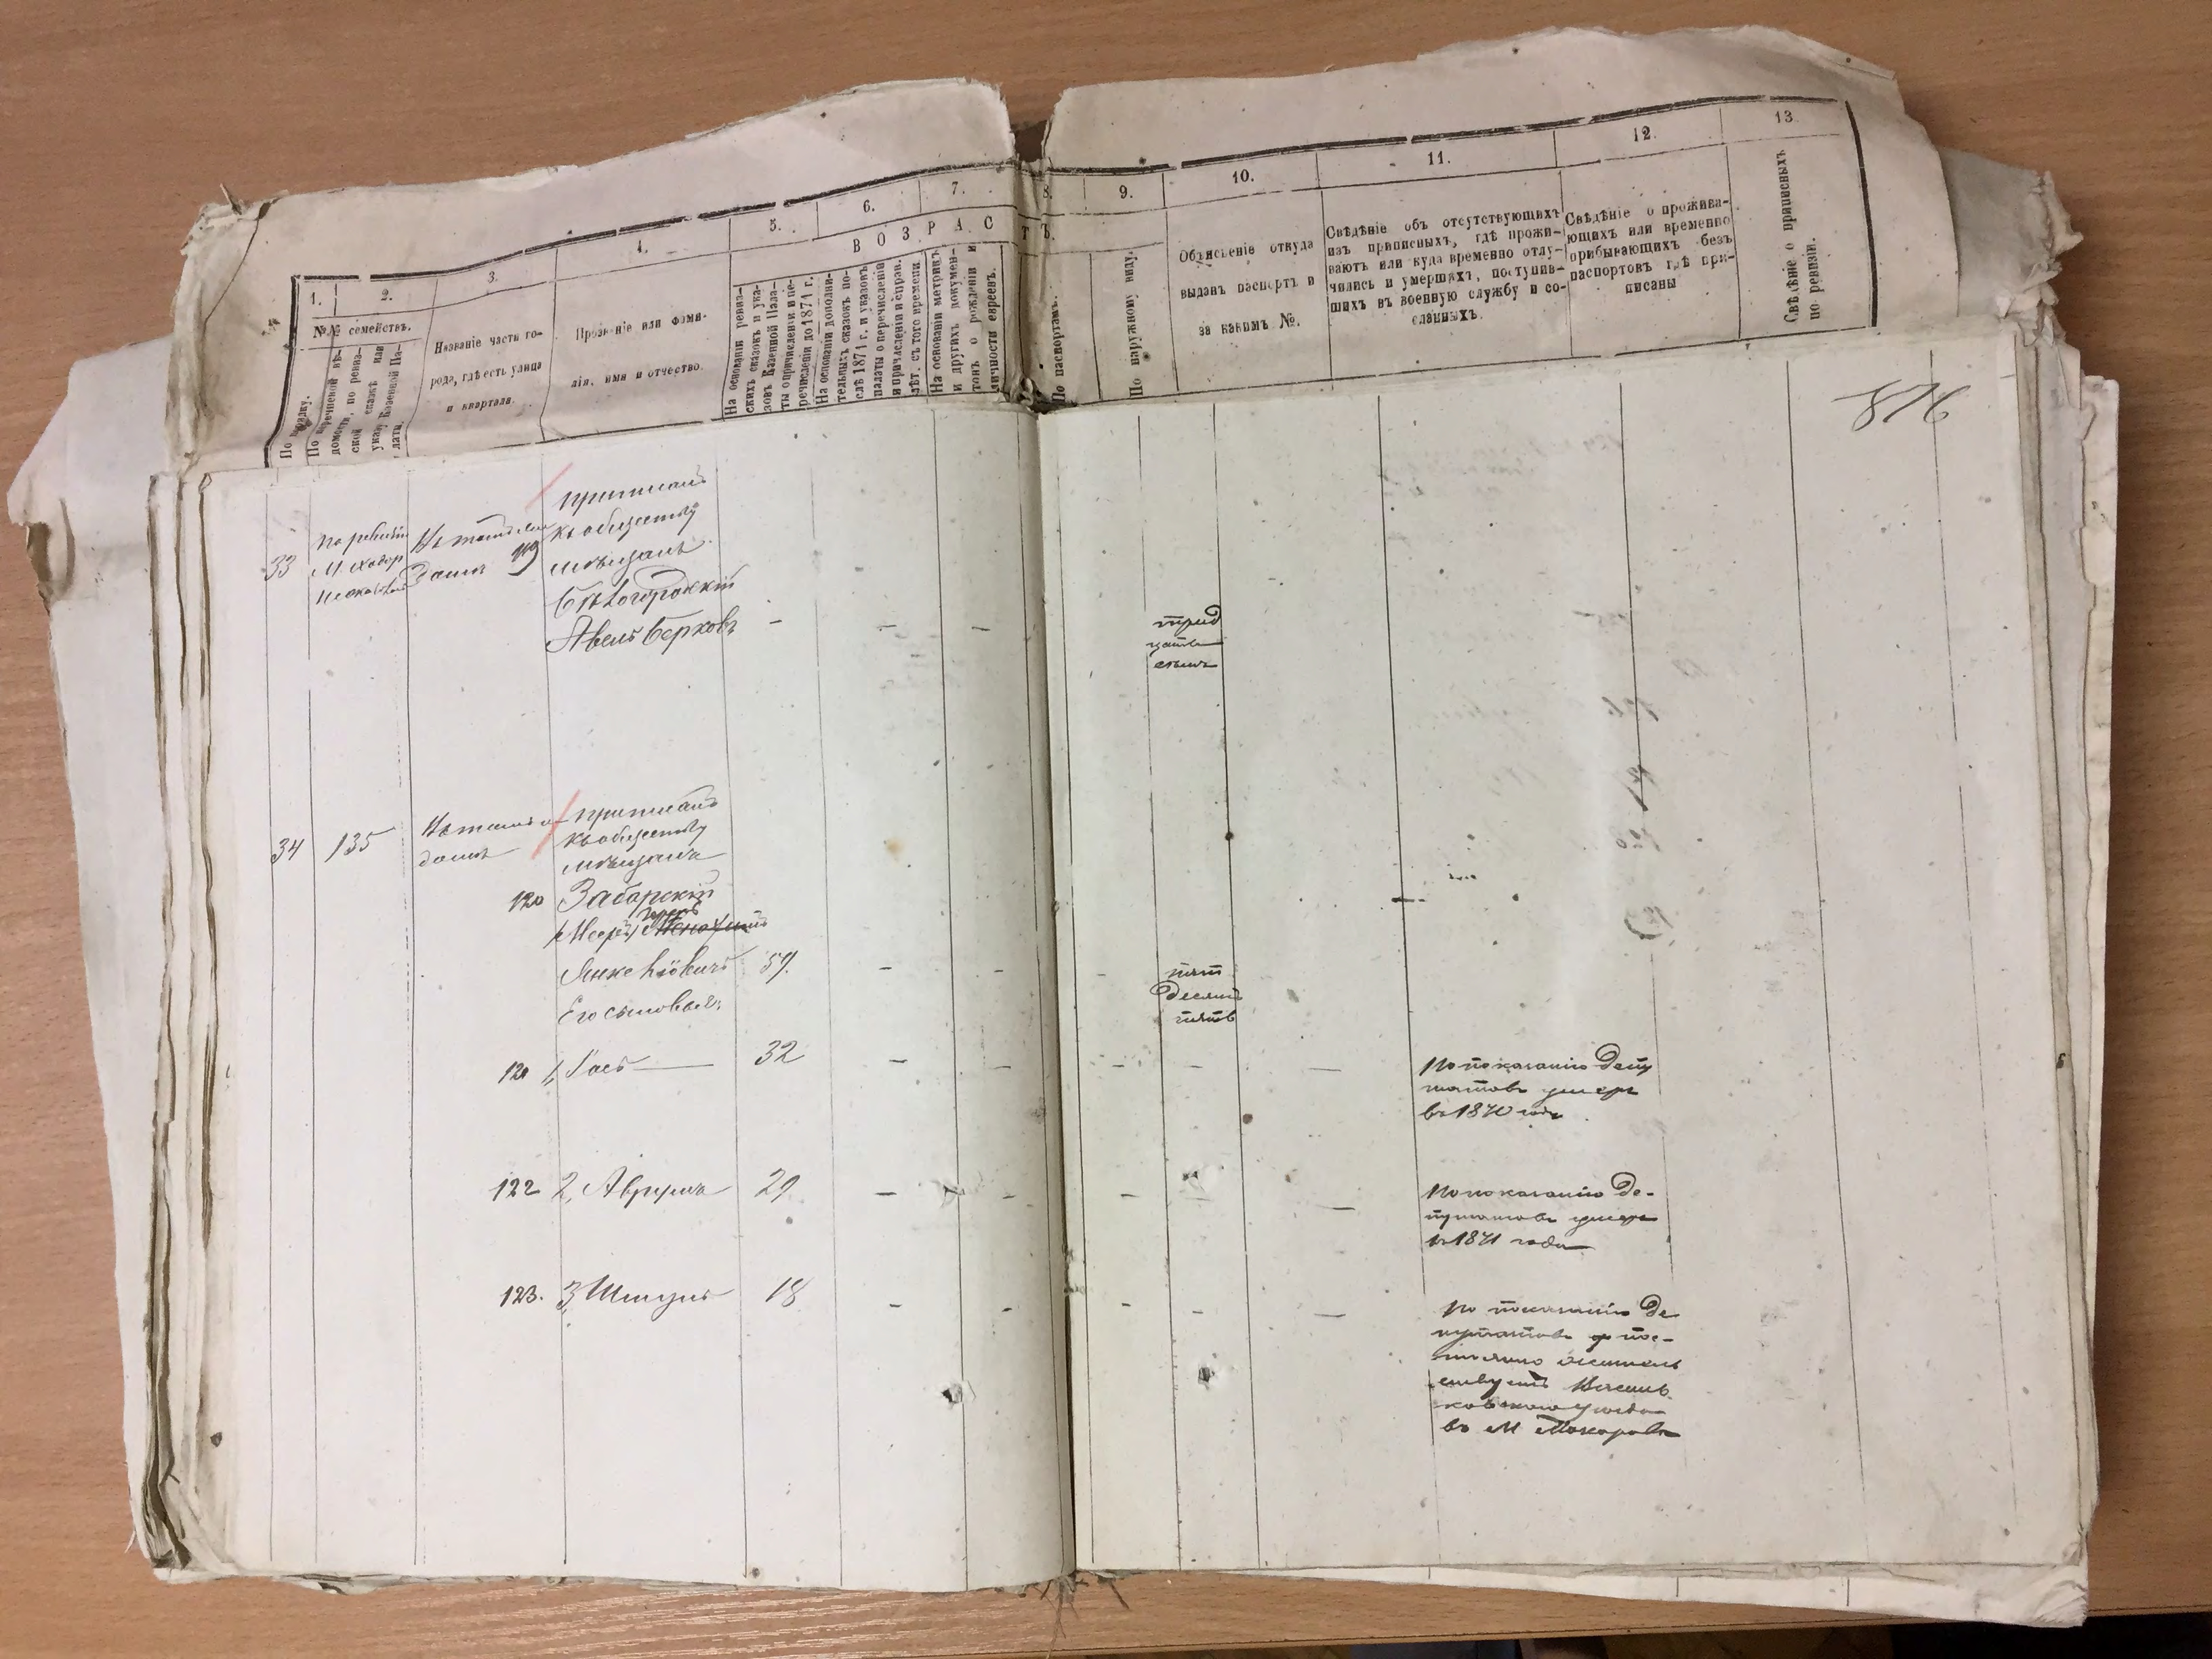 1.
2.
3.
4.
5.
6.
7.
8.
9.
10.
11.
12.
13.
В О З Р А С Т Ъ.
№№ семействъ.
По порядку.
По перечневой вѣ-
домости, по ревиз-
ской сказкѣ или
указу Казенной Па-
латы.
Названіе части го-
рода, гдѣ есть улица
и кварталъ.
Прозваніе или фами-
лія, имя и отчество.
На основаніи ревиз-
скихъ сказокъ и ука-
зовъ Казенной Пала-
ты о причисленіи и пе-
речисленіи до 1871 г.
На основаніи дополни-
тельныхъ сказокъ по-
слѣ 1871 г. и указовъ
палаты о перечисленіи
и причисленіи и справ.
лѣт. съ того времени.
На основаніи метрикъ
и другихъ докумен-
товъ о рожденіи и
личности евреевъ.
По паспортамъ.
По наружному виду.
Объясненіе откуда
выданъ паспортъ и
за какимъ №.
Свѣдѣніе объ отсутствующихъ
изъ приписныхъ, гдѣ прожи-
ваютъ или куда временно отлу-
чились и умершихъ, поступив-
шихъ въ военную службу и со-
сланныхъ.
Свѣдѣніе о прожива-
ющихъ или временно
прибывающихъ безъ
паспортовъ гдѣ при-
писаны
Свѣдѣніе о приписныхъ
по ревизіи.
876
33
по ревизіи
М. Ходор
119
приписанъ
къ обществу
мѣщанъ
Бѣлогородскій
Авель Берковъ
трид
цать
семь
34
135
домѣ
приписанъ
къ обществу
мѣщанъ
120 Забарскій
Янкелювичъ 57.
пят
десятъ
пять
Его сыновья:
121 1, 32
По показанію депу
татовъ умеръ
въ 1870 году
122 2, Аврумъ 29
По показанію де-
путатовъ умеръ
въ 1871 году
123. 3, Шмуль 18
по показанію де
путатовъ
жительствуетъ
уѣзда
въ М Макаровѣ